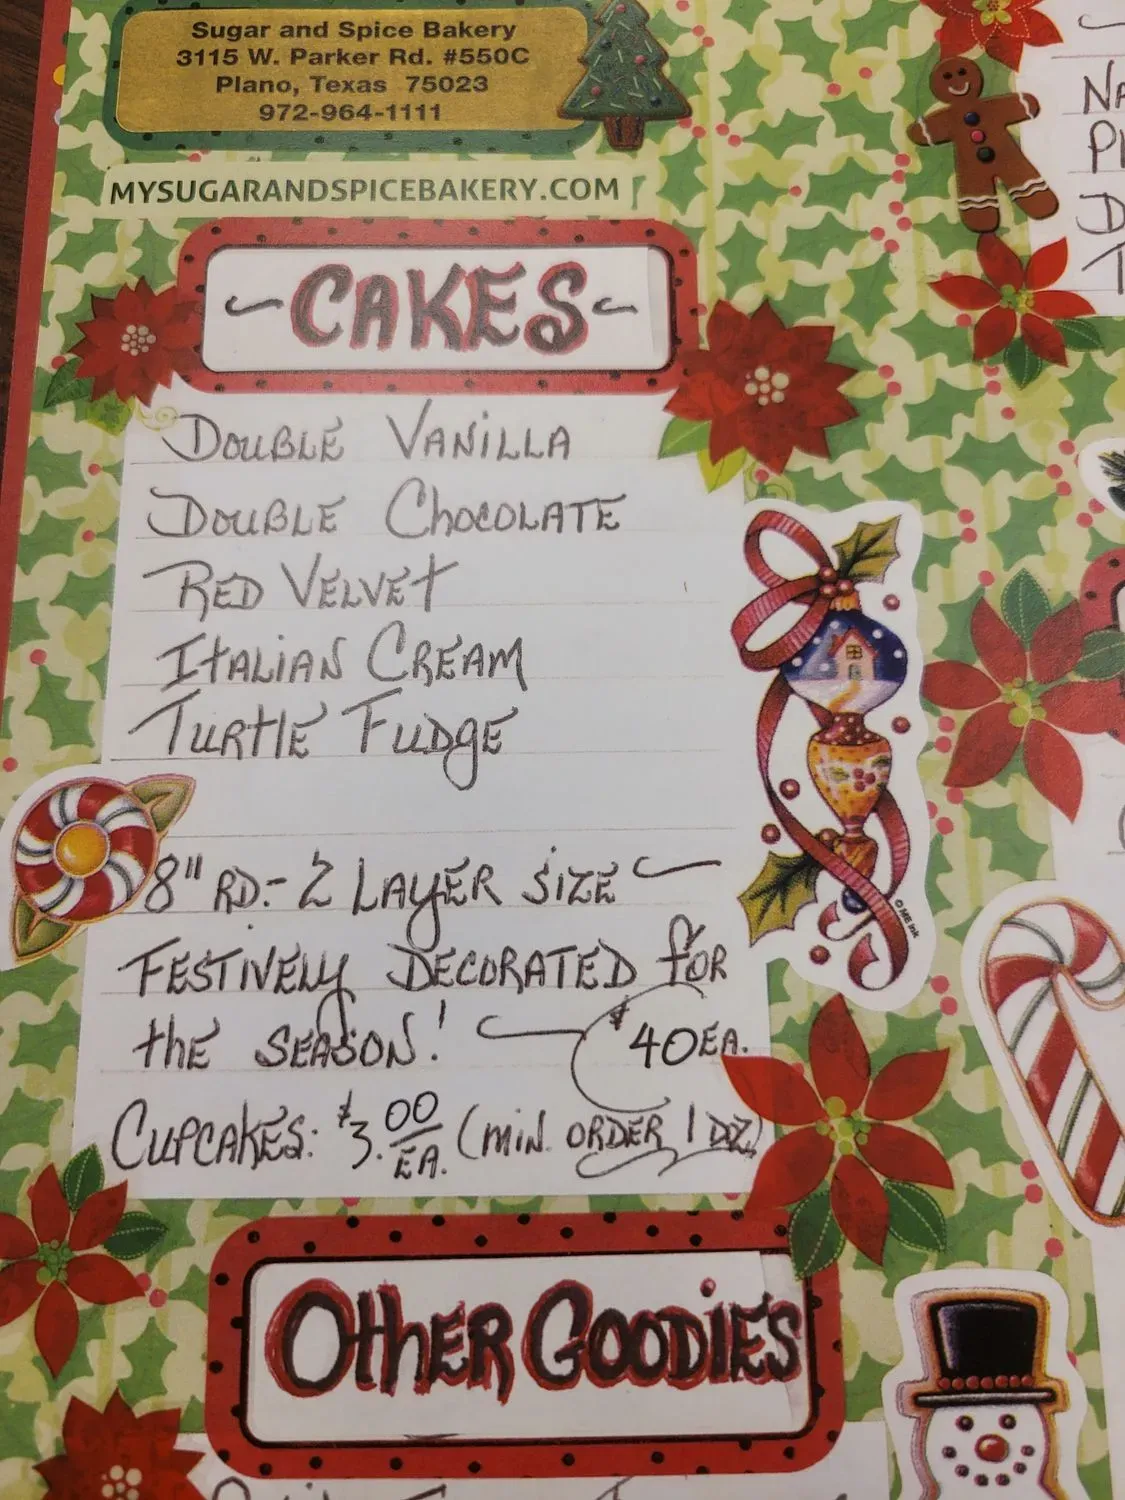 Sugar and Spice Bakery
3115 W. Parker Rd. #550C
Plano, Texas 75023
972-964-1111
MYSUGARANDSPICEBAKERY.COM
~CAKES~
DOUBLE VANILLA
DOUBLE CHOCOLATE
RED VELVET
ITALIAN CREAM
TURTLE FUDGE
8" RD.- 2 LAYER SIZE
FESTIVELY DECORATED FOR
THE SEASON! $40 EA.
CUPCAKES: $3.00 EA. (MIN. ORDER 1 DZ)
© ME Ink
OTHER GOODIES